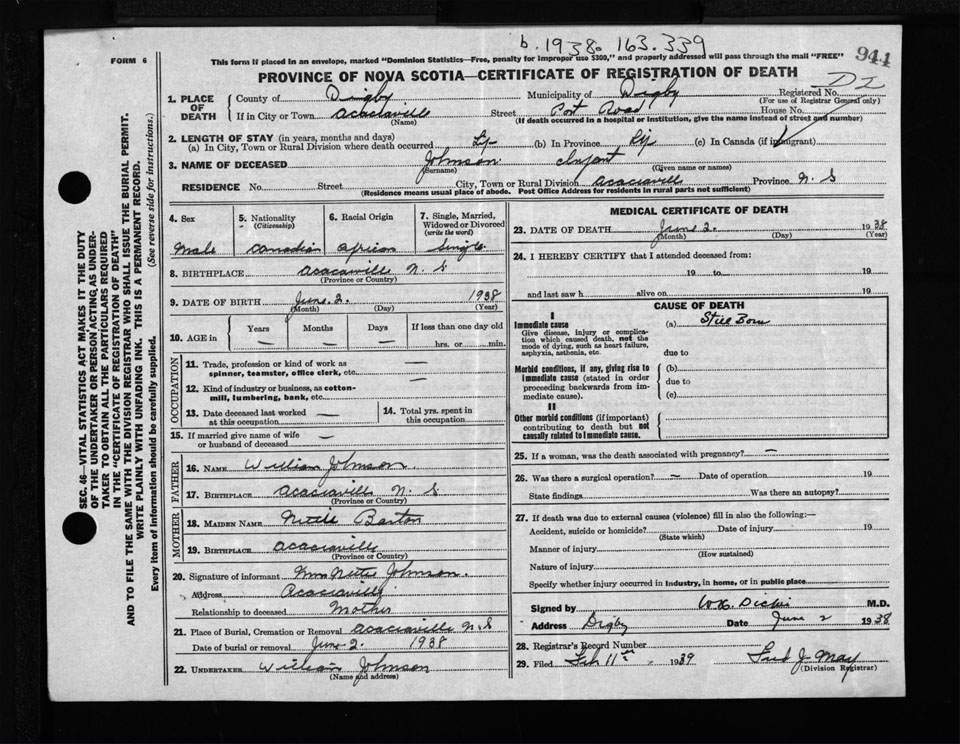 b. 1938. 163.339
944
FORM 6
This form if placed in an envelope, marked "Dominion Statistics—Free, penalty for improper use $300," and properly addressed will pass through the mail "FREE"
PROVINCE OF NOVA SCOTIA—CERTIFICATE OF REGISTRATION OF DEATH
SEC. 46—VITAL STATISTICS ACT MAKES IT THE DUTY
OF THE UNDERTAKER OR PERSON ACTING AS UNDER-
TAKER TO OBTAIN ALL THE PARTICULARS REQUIRED
IN THE "CERTIFICATE OF REGISTRATION OF DEATH"
AND TO FILE THE SAME WITH THE DIVISION REGISTRAR WHO SHALL ISSUE THE BURIAL PERMIT.
WRITE PLAINLY WITH UNFADING INK. THIS IS A PERMANENT RECORD.
Every item of Information should be carefully supplied. (See reverse side for instructions.)
1. PLACE OF DEATH County of Digby Municipality of Digby Registered No.
(For use of Registrar General only)
If in City or Town Acaciaville Street Post Road House No.
(Name) (If death occurred in a hospital or institution, give the name instead of street and number)
2. LENGTH OF STAY (in years, months and days)
(a) In City, Town or Rural Division where death occurred (b) In Province (c) In Canada (if immigrant)
3. NAME OF DECEASED Johnson Infant
(Surname) (Given name or names)
RESIDENCE No. Street City, Town or Rural Division Acaciavill Province N. S
(Residence means usual place of abode. Post Office Address for residents in rural parts not sufficient)
4. Sex Male
5. Nationality (Citizenship) Canadian
6. Racial Origin African
7. Single, Married, Widowed or Divorced (write the word) Single
8. BIRTHPLACE Acacaiville N. S
(Province or Country)
9. DATE OF BIRTH June. 2. 1938
(Month) (Day) (Year)
10. AGE in Years — Months — Days — If less than one day old
hrs. or min.
OCCUPATION
11. Trade, profession or kind of work as —
spinner, teamster, office clerk, etc.
12. Kind of industry or business, as cotton- —
mill, lumbering, bank, etc.
13. Date deceased last worked —
at this occupation
14. Total yrs. spent in
this occupation
15. If married give name of wife —
or husband of deceased
FATHER
16. NAME William Johnson
17. BIRTHPLACE Acaciaville N. S
(Province or Country)
MOTHER
18. MAIDEN NAME Nettie Barton
19. BIRTHPLACE Acaciaville
(Province or Country)
20. Signature of informant Mrs Nettie Johnson.
Address Acaciaville
Relationship to deceased Mother
21. Place of Burial, Cremation or Removal Acaciaville N. S
Date of burial or removal June 2 1938
22. UNDERTAKER William Johnson
(Name and address)
MEDICAL CERTIFICATE OF DEATH
23. DATE OF DEATH June 2. 1938
(Month) (Day) (Year)
24. I HEREBY CERTIFY that I attended deceased from:
19 to 19
and last saw h alive on 19
CAUSE OF DEATH
I
Immediate cause (a) Still Born
Give disease, injury or complica-
tion which caused death, not the
mode of dying, such as heart failure,
asphyxia, asthenia, etc.
due to
Morbid conditions, if any, giving rise to (b)
immediate cause (stated in order due to
proceeding backwards from im-
mediate cause). (c)
II
Other morbid conditions (if important)
contributing to death but not
causally related to immediate cause.
25. If a woman, was the death associated with pregnancy? —
26. Was there a surgical operation? — Date of operation 19
State findings Was there an autopsy?
27. If death was due to external causes (violence) fill in also the following:—
Accident, suicide or homicide? Date of injury 19
(State which)
Manner of injury
(How sustained)
Nature of injury
Specify whether injury occurred in industry, in home, or in public place
Signed by M.D.
Address Digby Date June 2 1938
28. Registrar's Record Number
29. Filed Feb 11th 1939 Fred J. May
(Division Registrar)